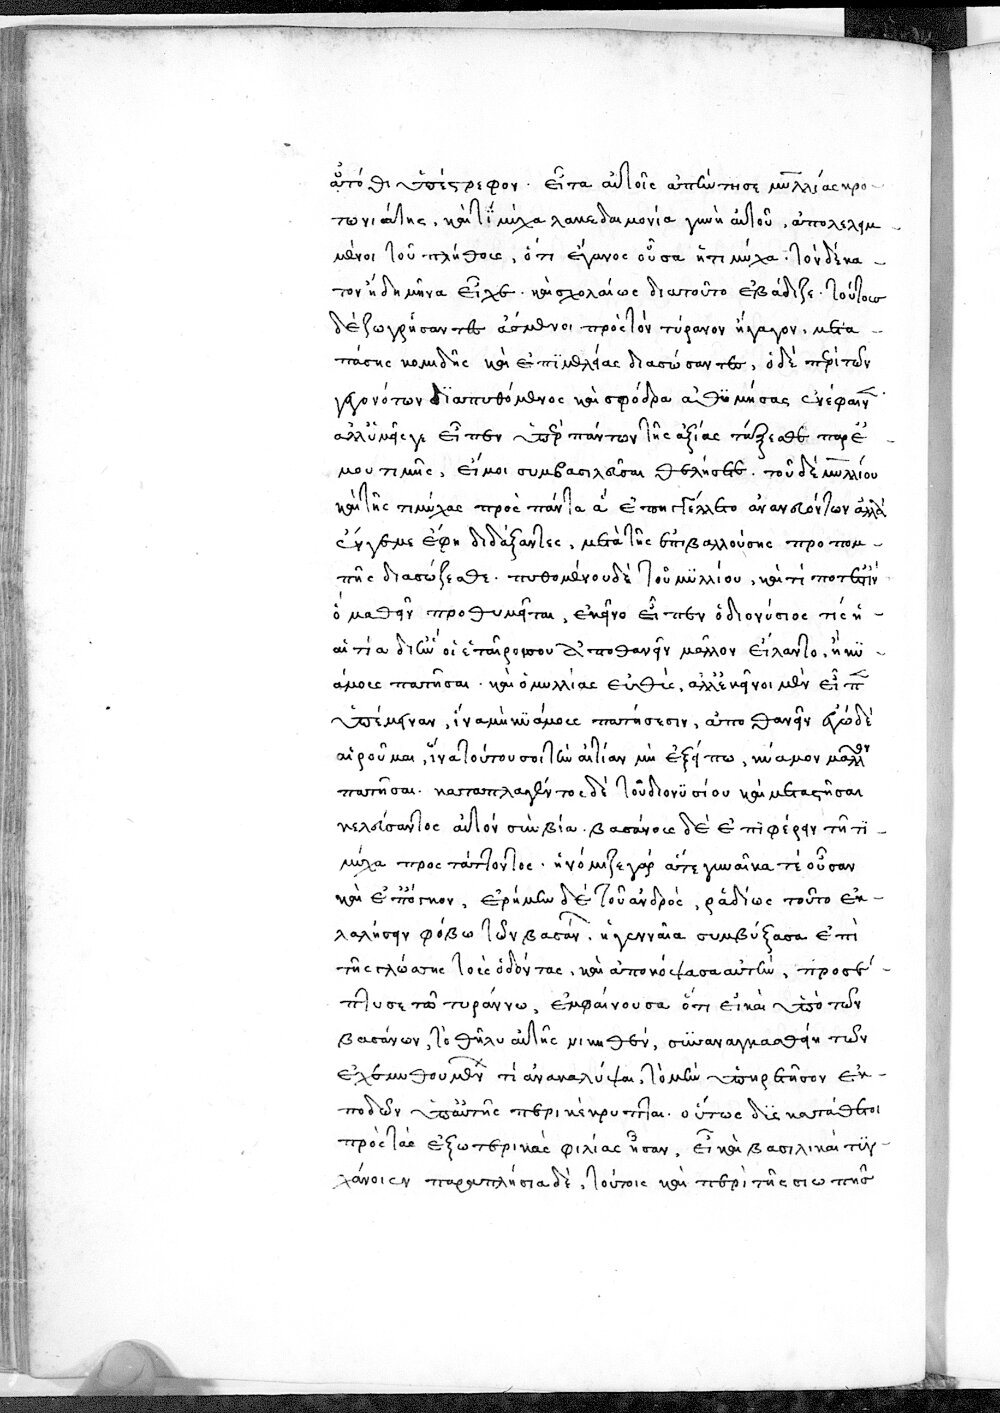 αὐτόθι ὑπέστρεφον. εἶτα αὐτοῖς ἀπήντησε μυλλίας κρο-
τωνιάτης, καὶ τιμύχα λακεδαιμονία γυνὴ αὐτοῦ, ἀπολελειμ-
μένοι τοῦ πλήθους, ὅτι ἔγκυος οὖσα ἡ τιμύχα. τὸν δέκα-
τον ἤδη μῆνα εἶχε. καὶ σχολαίως διὰ τοῦτο ἐβάδιζε. τούτους
δὲ ζωγρήσαντες ἄσμενοι πρὸς τὸν τύρανον ἤγαγον, μετὰ
πάσης κομιδῆς καὶ ἐπιμελείας διασώσαντες, ὁ δὲ περὶ τῶν
γεγονότων διαπυθόμενος καὶ σφόδρα ἀθυμήσας ἐνεφαίν
ἀλλ' ὑμεῖς γε εἶπεν ὑπὲρ πάντων τῆς ἀξίας τεύξεσθε παρ' ἐ
μου τιμῆς, εἴ μοι συμβασιλεῦσαι θελήσετε. τοῦ δὲ μυλλίου
καὶ τῆς τιμύχας πρὸς πάντα ἃ ἐπηγγέλλετο ἀνανευόντων ἀλλὰ
ἕν γέ με ἔφη διδάξαντες, μετὰ τῆς ἐπιβαλλούσης προπομ-
πῆς διασώζεσθε. πυθομένου δὲ τοῦ μυλλίου, καὶ τί ποτ' ἐστὶν
ὃ μαθεῖν προθυμεῖται, ἐκεῖνο εἶπεν ὁ διονύσιος τίς ἡ
αἰτία δι' ἣν οἱ ἑταῖροί σου ἀποθανεῖν μᾶλλον εἵλαντο, ἢ κυ-
άμους πατῆσαι. καὶ ὁ μυλλίας εὐθύς, ἀλλ' ἐκεῖνοι μὲν εἶπ
ὑπέμειναν, ἵνα μὴ κυάμους πατήσωσιν, ἀποθανεῖν ἐγὼ δὲ
αἱροῦμαι, ἵνα τούτου σοι τὴν αἰτίαν μὴ ἐξείπω, κύαμον μᾶλλον
πατῆσαι. καταπλαγέντος δὲ τοῦ διονυσίου καὶ μεταστῆσαι
κελεύσαντος αὐτὸν σὺν βία. βασάνους δὲ ἐπιφέρειν τῆ τι-
μύχα προστάττοντος. ἐνόμιζε γὰρ ἅτε γυναῖκά τε οὖσαν
καὶ ἔπογκον, ἐρήμην δὲ τοῦ ἀνδρός, ῥαδίως τοῦτο ἐκ-
λαλήσειν φόβω τῶν βασάν. ἡ γενναία συμβρύξασα ἐπὶ
τῆς γλώσσης τοὺς ὀδόντας, καὶ ἀποκόψασα αὐτὴν, προσέ-
πτυσε τῶ τυράννω, ἐμφαίνουσα ὅτι εἰ καὶ ὑπὸ τῶν
βασάνων, τὸ θῆλυ αὐτῆς νικηθὲν, συναναγκασθείη τῶν
ἐχεμυθουμένων τί ἀνακαλύψαι, τὸ μὴν ὑπηρετῆσον ἐκ-
ποδῶν ὑπ' αὐτῆς περικέκρυπται. οὕτως δυσκατάθετοι
πρὸς τὰς ἐξωτερικὰς φιλίας ἦσαν, εἰ καὶ βασιλικαὶ τυγ-
χάνοιεν παραπλήσια δὲ, τούτοις καὶ περὶ τῆς σιωπῆς